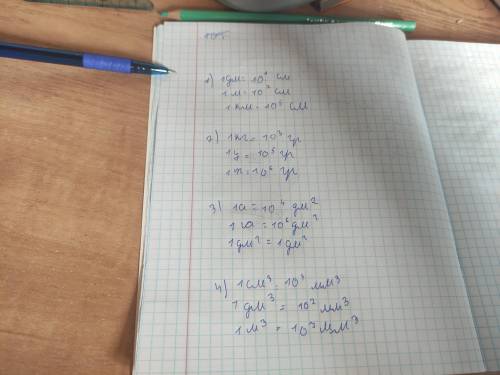 1) 1дм = 10¹ см
1м = 10² см
1км = 10⁵ см
2) 1кг = 10³ гр
1ц = 10⁵ гр
1т = 10⁶ гр
3) 1а = 10⁴ дм²
1га = 10⁶ дм²
1дм² = 1дм²
4) 1см³ = 10³ мм³
1дм³ = 10² мм³
1м³ = 10³ мм³